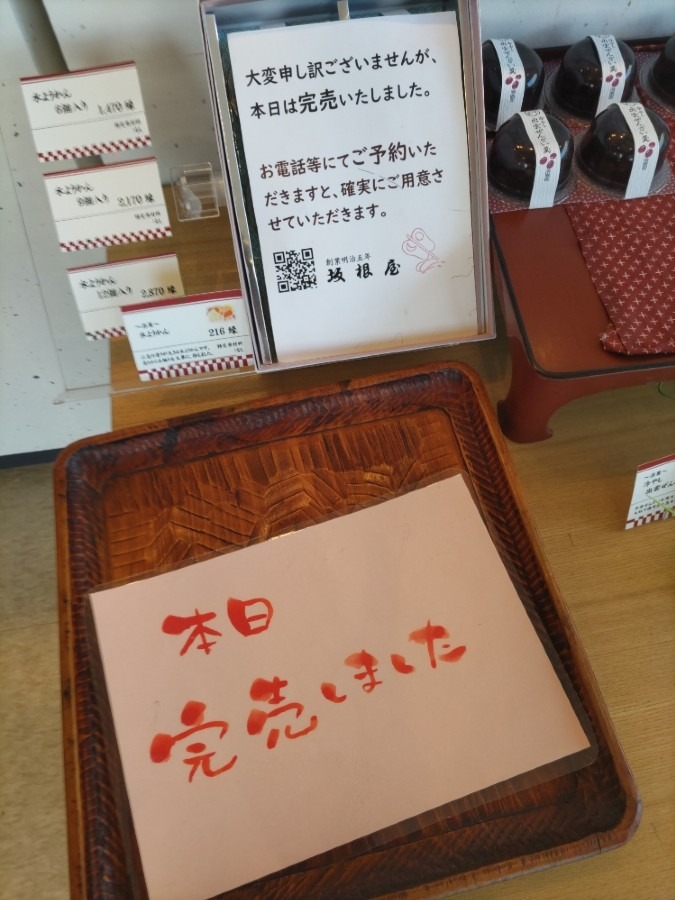 大変申し訳ございませんが、
本日は完売いたしました。
お電話等にてご予約いた
だきますと、確実にご用意さ
せていただきます。
創業明治五年
坂根屋
水ようかん
6個入り 1,470 円
水ようかん
9個入り 2,170 円
水ようかん
12個入り 2,870 円
〜涼菓〜
水ようかん
216 円
〜涼菓〜
冷やし
出雲ぜん
本日
完売しました